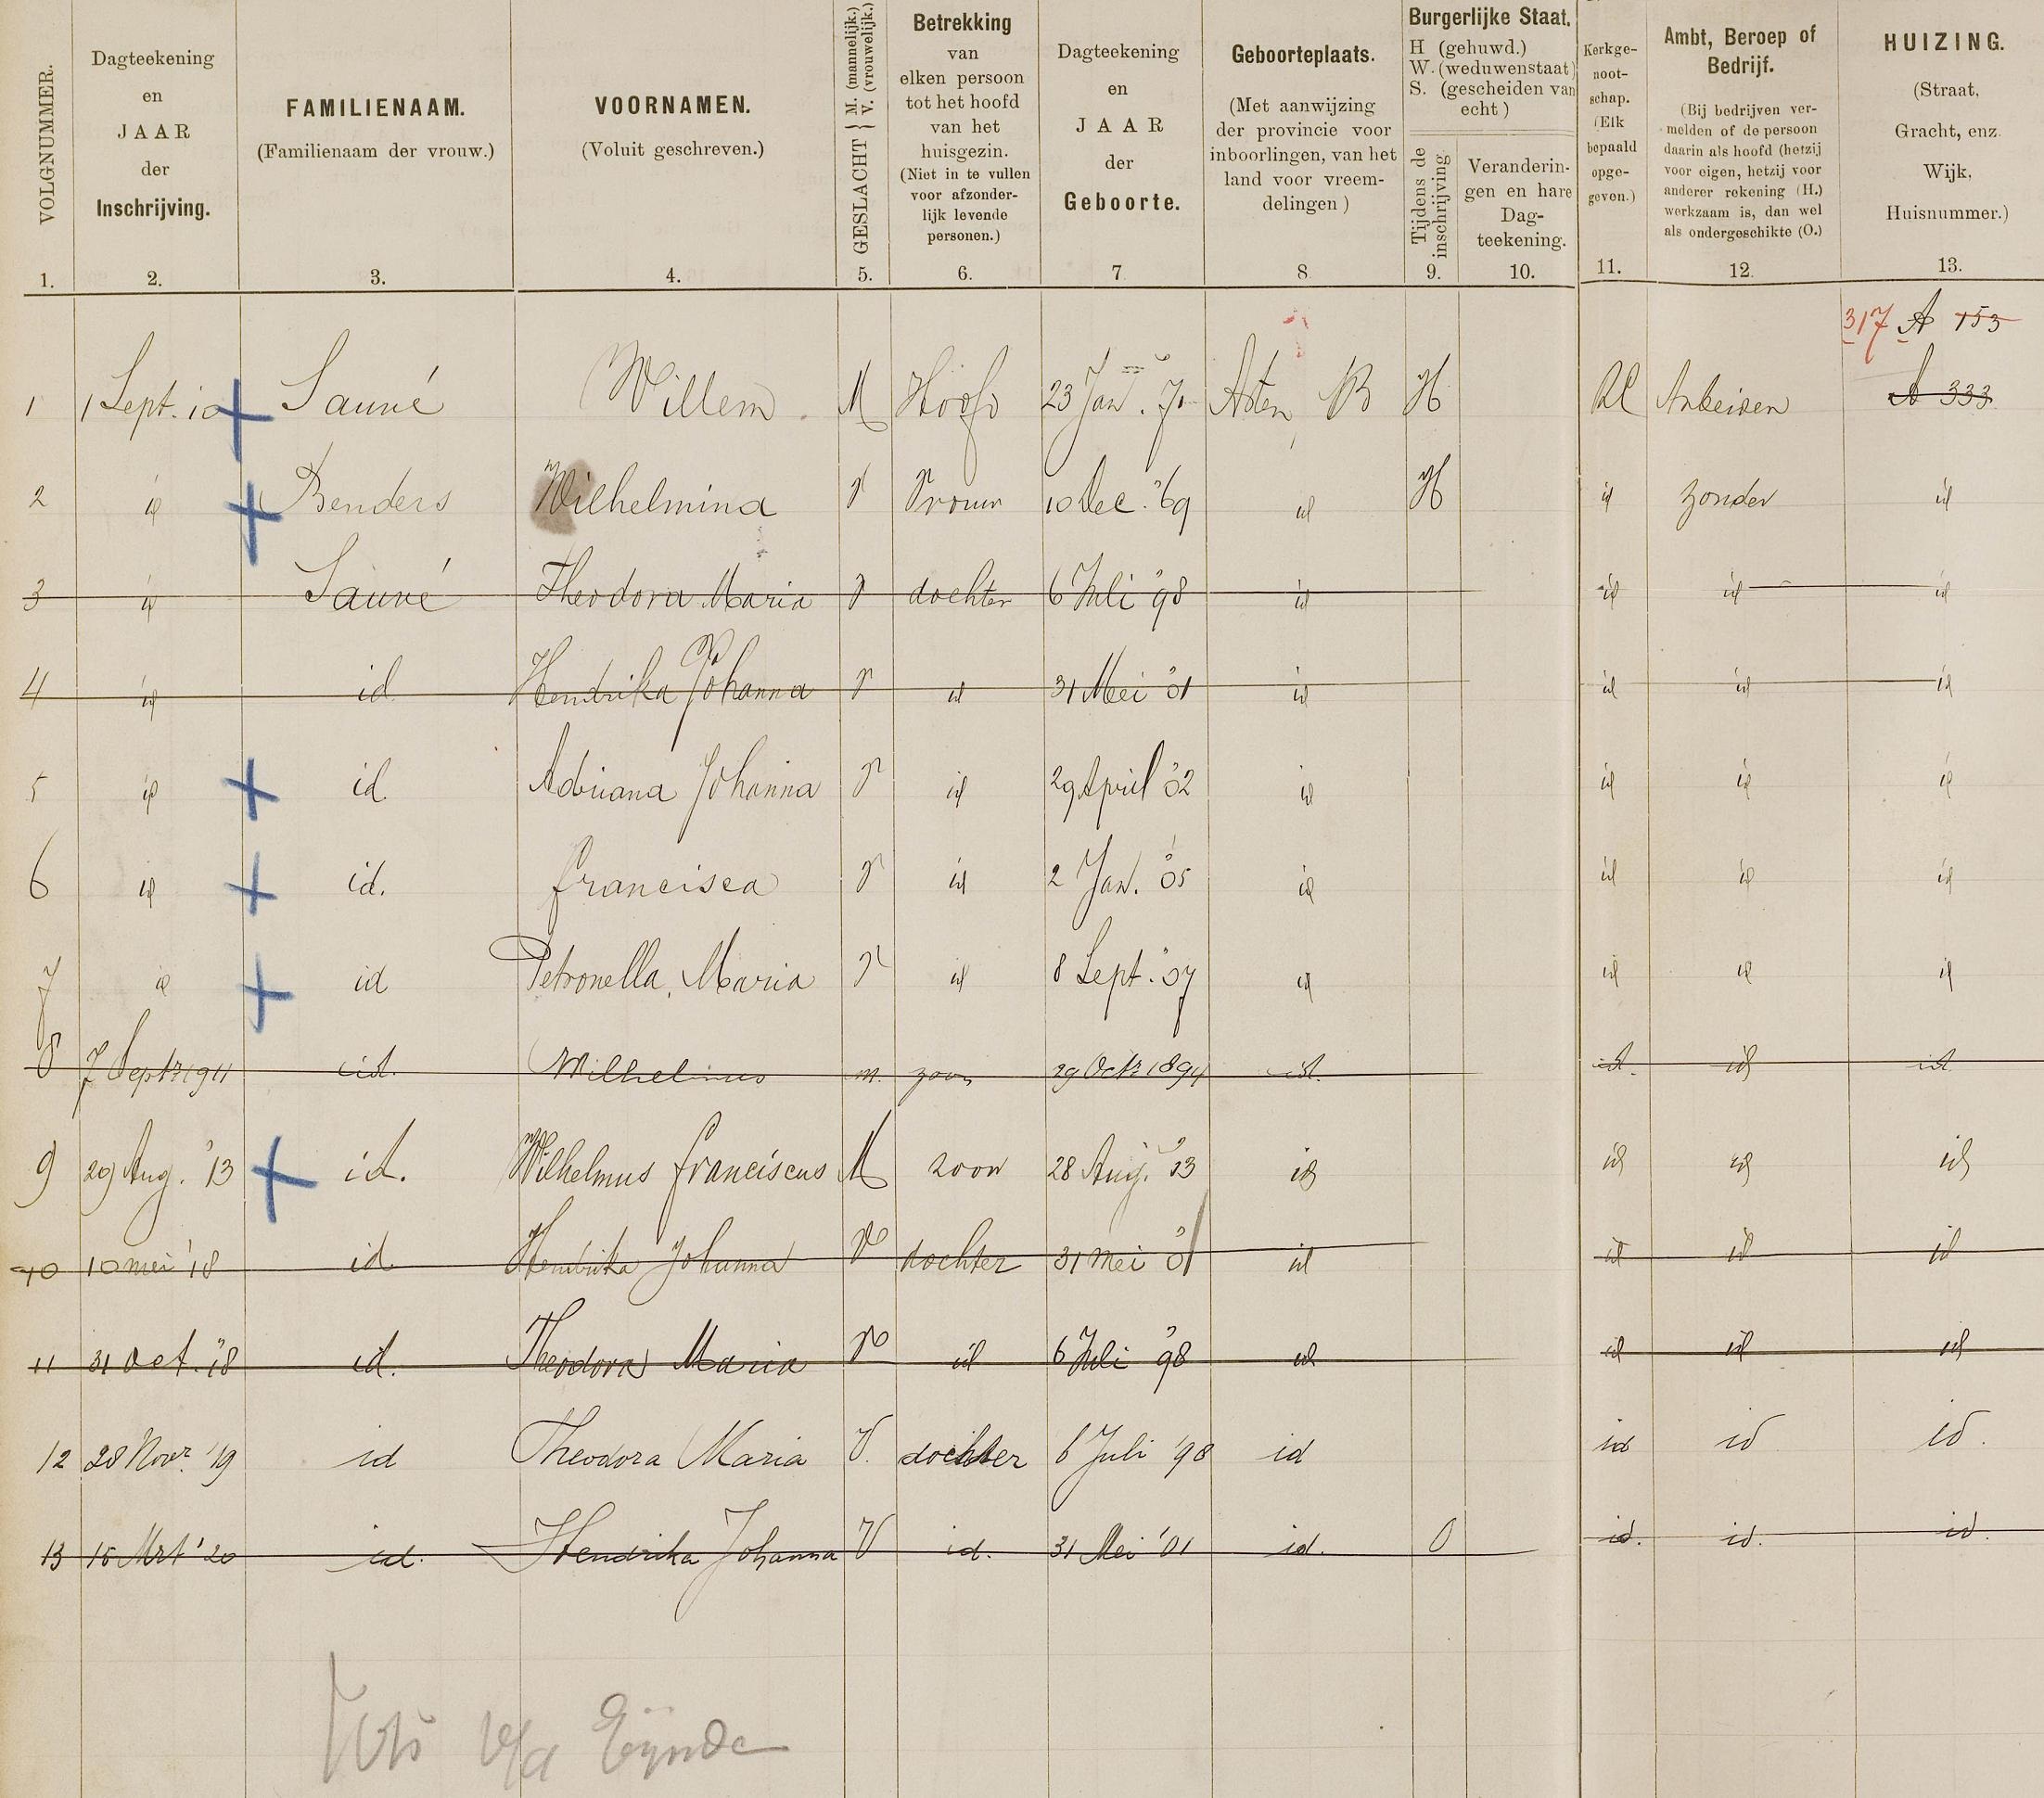 VOLGNUMMER.
1.
Dagteekening
en
JAAR
der
Inschrijving.
2.
FAMILIENAAM.
(Familienaam der vrouw.)
3.
VOORNAMEN.
(Voluit geschreven.)
4.
GESLACHT { M. (mannelijk.) V. (vrouwelijk.)
5.
Betrekking
van
elken persoon
tot het hoofd
van het
huisgezin.
(Niet in te vullen
voor afzonder-
lijk levende
personen.)
6.
Dagteekening
en
JAAR
der
Geboorte.
7
Geboorteplaats.
(Met aanwijzing
der provincie voor
inboorlingen, van het
land voor vreem-
delingen)
8
Burgerlijke Staat.
H (gehuwd.)
W. (weduwenstaat)
S. (gescheiden van
echt)
Tijdens de
inschrijving
9.
Veranderin-
gen en hare
Dag-
teekening.
10.
Kerkge-
noot-
schap.
(Elk
bepaald
opge-
geven.)
11.
Ambt, Beroep of
Bedrijf.
(Bij bedrijven ver-
melden of de persoon
daarin als hoofd (hetzij
voor eigen, hetzij voor
anderer rekening (H.)
werkzaam is, dan wel
als ondergeschikte (O.)
12
HUIZING.
(Straat,
Gracht, enz.
Wijk,
Huisnummer.)
13.
317 A 153
1 1 Sept. 10 Sauvé Willem M Hoofd 23 Jan. 70 Asten NB H RC Arbeider A 333
2 id Benders Wilhelmina V Vrouw 10 Dec. '69 id H id zonder id
3 id Sauvé Theodora Maria V dochter 6 Juli '98 id id id id
4 id id Hendrika Johanna V id 31 Mei '01 id id id id
5 id id. Adriana Johanna V id 29 April '02 id id id id
6 id id. Francisca V id 2 Jan. '05 id id id id
7 id id Petronella Maria V id 8 Sept. '07 id id id id
8 7 Septr 1911 id. Wilhelmus m. zoon 29 Octr 1894 id. id. id id
9 29 Aug. '13 id. Wilhelmus Franciscus M zoon 28 Aug. '13 id id id id
10 10 mei '18 id Hendrika Johanna V dochter 31 mei '01 id id id id
11 31 Oct. '18 id. Theodora Maria V id 6 Juli '98 id id id id
12 28 Novr. '19 id Theodora Maria V. dochter 6 Juli '98 id id id id.
13 15 Mrt '20 id. Hendrika Johanna V id. 31 Mei '01 id. O id. id. id.
v/d Eijnde